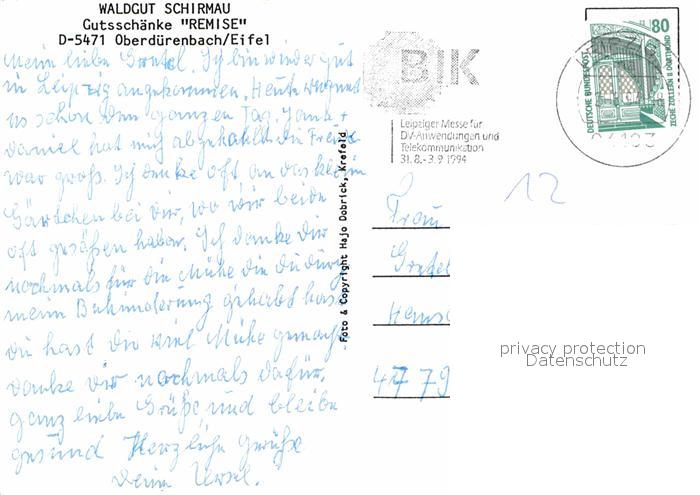 WALDGUT SCHIRMAU
Gutsschänke "REMISE"
D-5471 Oberdürenbach/Eifel
Meine liebe Gretel, Ich bin wieder gut
in Leipzig angekommen. Heute regnet
es schon den ganzen Tag. Jana +
Daniel hat mich abgehohlt die Freude
war groß. Ich denke oft an das klein
Gärtchen bei dir, wo wir beide
oft gesäßen haben. Ich danke Dir
nochmals für die Mühe die du durch
meine Behinderung gehabt hast
Du hast dir viel Mühe gemacht,
danke dir nochmals dafür,
ganz liebe Grüße und bleibe
gesund Herzliche Grüße
Deine Ursel.
Foto & Copyright Hajo Dobrick, Krefeld
BIK
Leipziger Messe für
DV-Anwendungen und
Telekommunikation
31.8.-3.9.1994
80
DEUTSCHE BUNDESPOST
ZECHE ZOLLERN II DORTMUND
12
Frau
Gretel
Hems
47 79
privacy protection
Datenschutz